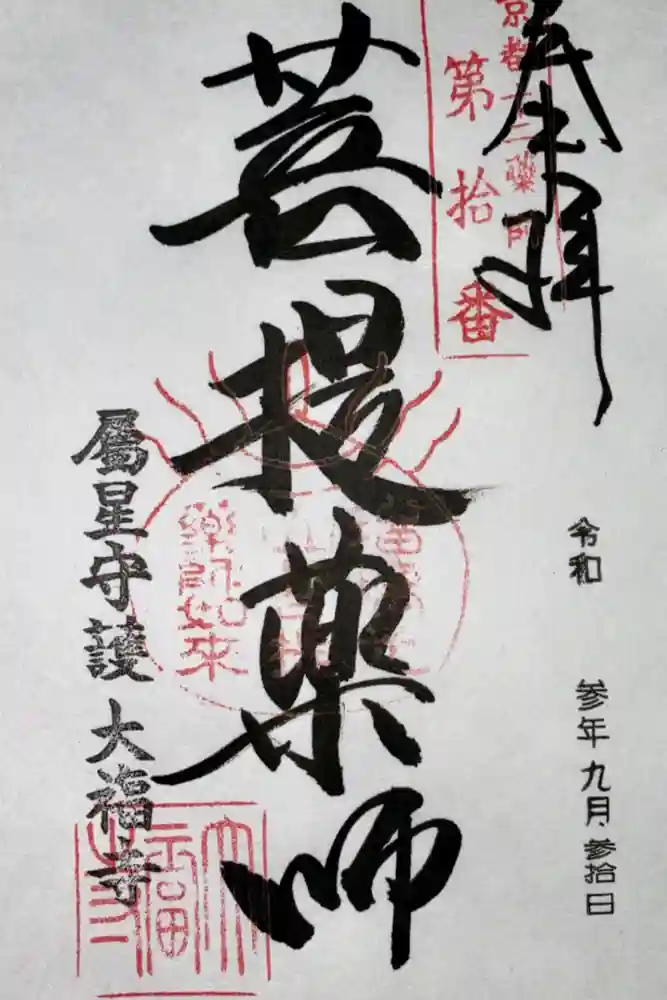 奉拝
京都十二薬師
第拾番
令和 参年九月参拾日
菩提薬師
薬師如来
属星守護 大福寺
大福寺